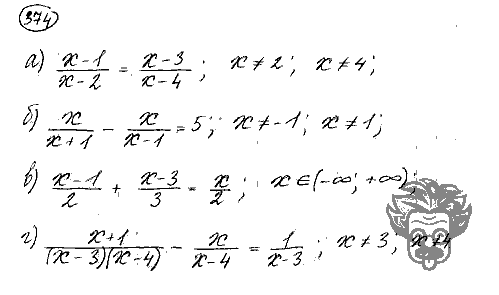 374
а) (x-1)/(x-2) = (x-3)/(x-4); x ≠ 2; x ≠ 4;
б) x/(x+1) - x/(x-1) = 5; x ≠ -1; x ≠ 1;
в) (x-1)/2 + (x-3)/3 = x/2; x ∈ (-∞; +∞);
г) (x+1)/((x-3)(x-4)) - x/(x-4) = 1/(x-3); x ≠ 3; x ≠ 4